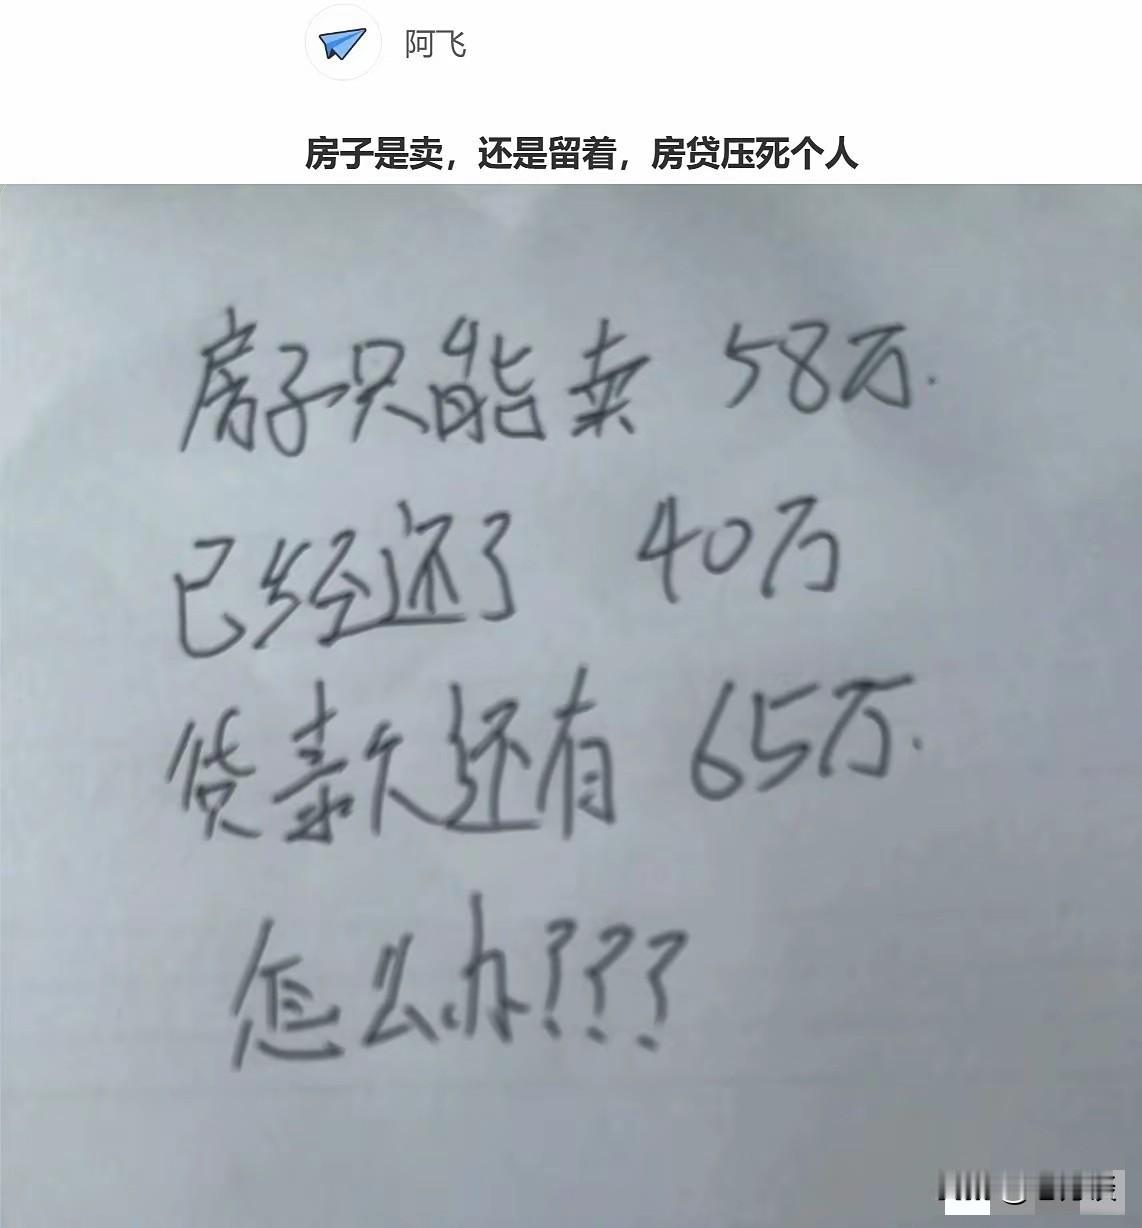 阿飞
房子是卖，还是留着，房贷压死个人
房子只能卖 58万.
已经还了 40万
贷款欠还有 65万.
怎么办???